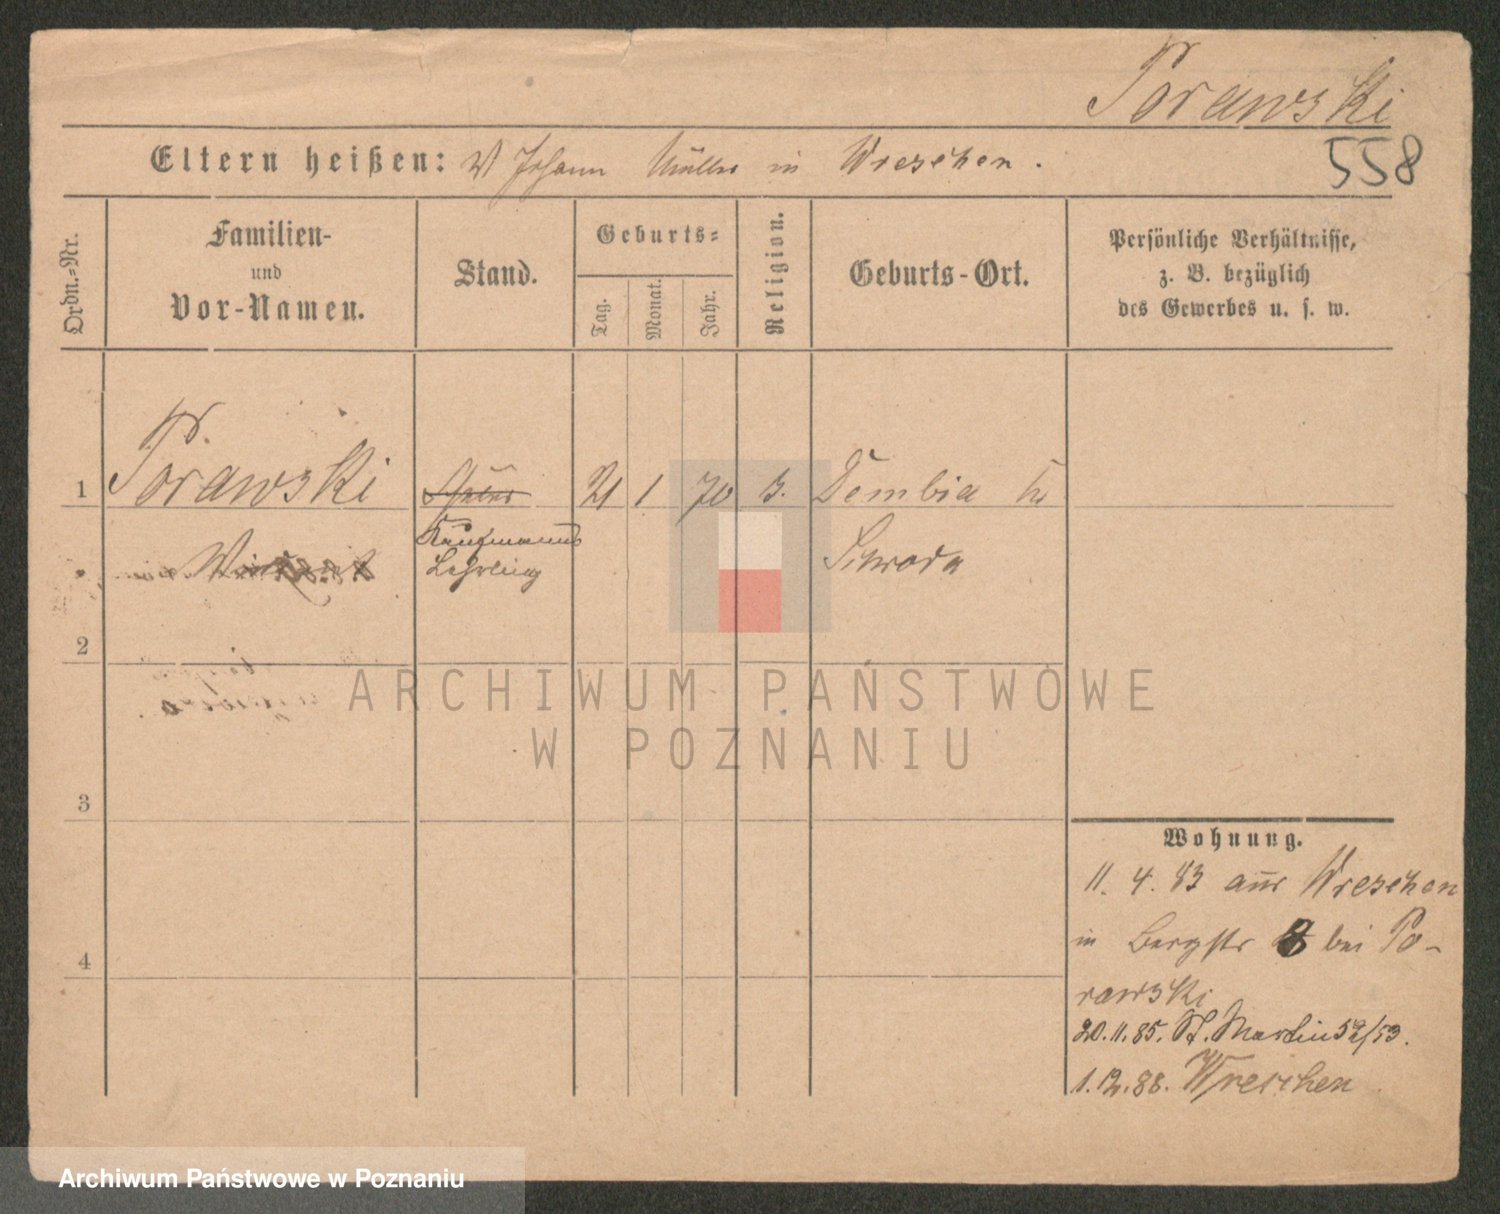 Porawski
558
Eltern heißen: W Johann Müller in Wreschen.
Ordn.=Nr.
Familien-
und
Vor-Namen.
Stand.
Geburts=
Tag.
Monat.
Jahr.
Religion.
Geburts-Ort.
Persönliche Verhältnisse,
z. B. bezüglich
des Gewerbes u. s. w.
1
Porawski
21 1 70
Dembia Kr
Kaufmanns
Lehrling
Schroda
2
3
4
Wohnung.
11. 4. 83 aus Wreschen
in Bergstr 8 bei Po-
rawski
20.11.85. St. Martin 52/53.
1.12.88. Wreschen
ARCHIWUM PAŃSTWOWE
W POZNANIU
Archiwum Państwowe w Poznaniu